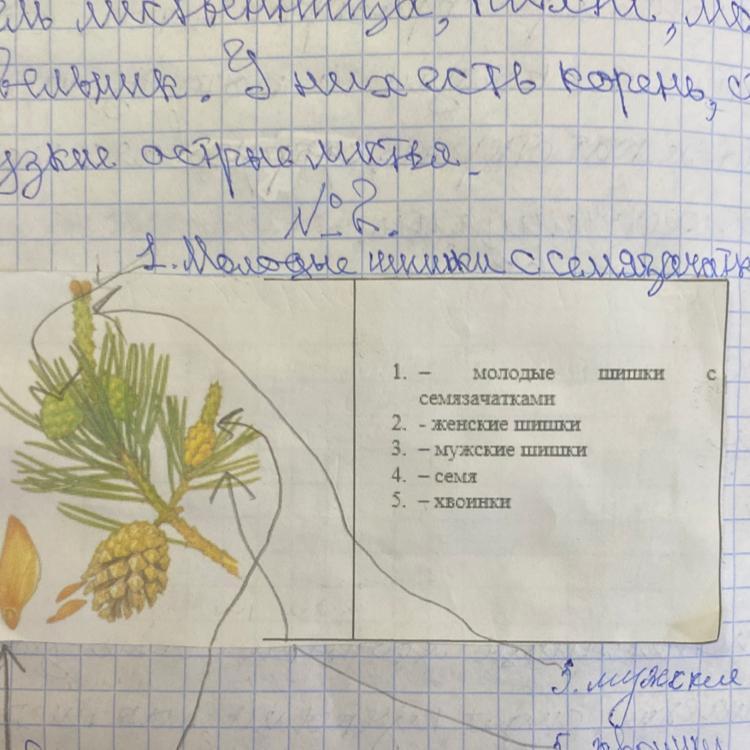 лиственница,
ельник. У них есть корень,
узкие острые листья.
№2.
1. Молодые шишки с семязачатк
1. – молодые шишки с
семязачатками
2. - женские шишки
3. – мужские шишки
4. – семя
5. – хвоинки
3. мужские
5. хвоинки